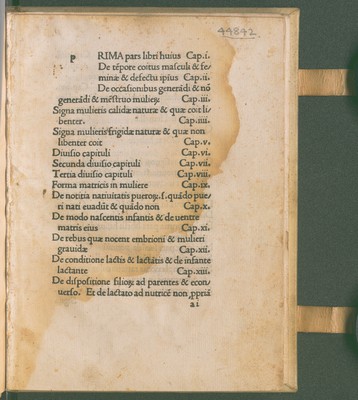 44842
P RIMA pars libri huius Cap.i.
De tẽpore coitus masculi & fe/
minæ & defectu ipius Cap.ii.
De occasionibus generãdi & nõ
generãdi & mẽstruo mulieꝝ. Cap.iii.
Signa mulieris calidæ naturæ & quæ coit li/
benter. Cap.iiii.
Signa mulieris frigidæ naturæ & quæ non
libenter coit Cap.v.
Diuisio capituli Cap.vi.
Secunda diuisio capituli Cap.vii.
Tertia diuisio capituli Cap.viii.
Forma matricis in muliere Cap.ix.
De notitia natiuitatis pueroꝝ.s. quãdo pue/
ri nati euadũt & quãdo non Cap.x.
De modo nascentis infantis & de uentre
matris eius Cap.xi.
De rebus quæ nocent embrioni & mulieri
grauidæ Cap.xii.
De conditione lactis & lactãtis & de infante
lactante Cap.xiii.
De dispositione filioꝝ ad parentes & econ/
uerso. Et de lactato ad nutricẽ non ꝓpriã
a2